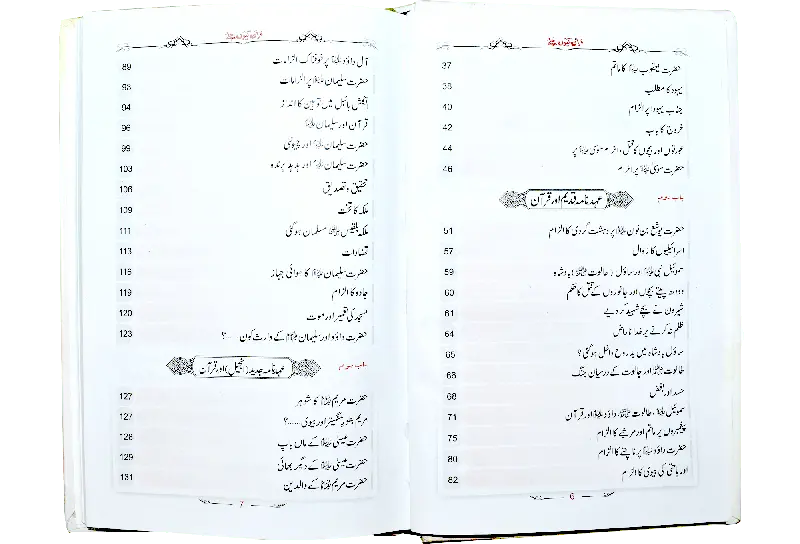 حضرت یعقوب علیہ السلام کا ماتم 37
یہود کا مطلب 38
جناب یہودا پر الزام 40
خروج کا باب 42
عورتوں اور بچوں کا قتل، الزام موسیٰ علیہ السلام پر 44
حضرت موسیٰ علیہ السلام پر الزام 46
باب دوم
عہد نامہ قدیم اور قرآن
حضرت یوشع بن نون علیہ السلام پر دہشت گردی کا الزام 51
اسرائیلیوں کا زوال 57
سموئیل نبی علیہ السلام اور ساؤل (طالوت علیہ السلام) بادشاہ 59
دودھ پیتے بچوں اور جانوروں کے قتل کا حکم 60
شہروں نے بچے شہید کر دیے 61
ظلم نہ کرنے پر خدا ناراض 64
ساؤل بادشاہ میں بد روح داخل ہو گئی؟ 65
طالوت علیہ السلام اور جالوت کے درمیان جنگ 68
حسد اور بغض 68
سموئیل علیہ السلام، طالوت علیہ السلام، داؤد علیہ السلام اور قرآن 71
پیغمبروں پر ماتم اور مرثیے کا الزام 75
حضرت داؤد علیہ السلام پر ناچنے کا الزام 80
اور یاہ حتی کی بیوی کا الزام 82
6
آل داؤد علیہ السلام پر خوفناک الزامات 89
حضرت سلیمان علیہ السلام پر الزامات 93
انگلش بائبل میں توہین کا انداز 94
قرآن اور سلیمان علیہ السلام 96
حضرت سلیمان علیہ السلام اور چیونٹی 99
حضرت سلیمان علیہ السلام اور ہدہد پرندہ 103
تحقیق و تصدیق 106
ملکہ کا تخت 109
ملکہ بلقیس علیہا السلام مسلمان ہو گئی 111
تضادات 113
حضرت سلیمان علیہ السلام کا ہوائی جہاز 116
جادو کا الزام 119
مسجد کی تعمیر اور موت 120
حضرت داؤد اور سلیمان علیہما السلام کے وارث کون ۔۔۔؟ 123
باب سوم
عہد نامہ جدید (انجیل) اور قرآن
حضرت مریم علیہا السلام کا شوہر 127
مریم بطور منگیتر اور بیوی ۔۔۔۔۔؟ 127
حضرت عیسیٰ علیہ السلام کے ماں باپ 128
حضرت عیسیٰ علیہ السلام کے دیگر بھائی 129
حضرت مریم علیہا السلام کے والدین 131
7